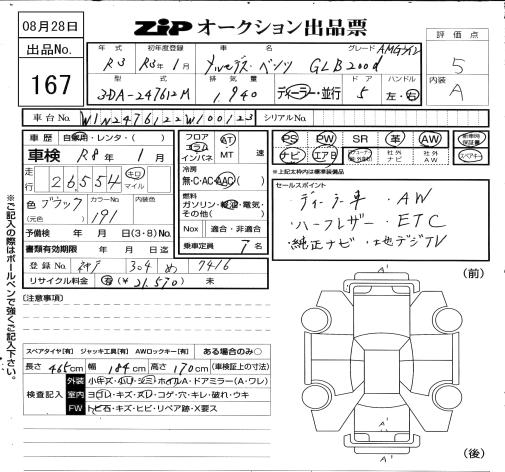 08月28日
ZIP オークション出品票
出品No.
167
評価点
5
内装
A
年式 初年度登録 車名 グレード AMGライン
R3 R3年1月 メルセデス・ベンツ GLB200d
型式 排気量 ドア ハンドル
3DA-247612M 1,940 ディーラー・並行 5 左・右
車台No. W1N2476122W100123 シリアルNo.
車歴 自家用・レンタ・( )
車検 R8年1月
走行 26,554 キロ マイル
色 ブラック カラーNo. 191 内装色
(元色)
予備検 年 月 日(3・8)No.
書類有効期限 年 月 日迄
登録No. 神戸 304 め 7416
リサイクル料金 有(¥ 21,570) 未
フロア コラム インパネ AT MT 速
冷房
無・C・AC・AAC( )
燃料
ガソリン・軽油・電気・その他( )
Nox 適合・非適合
乗車定員 7名
PS PW SR 革 AW 新車時保証書
ナビ エアB 社外ナビ 社外AW スペアキー
※上記太枠内は標準装備品
セールスポイント
・ディーラー車 ・AW
・ハーフレザー ・ETC
・純正ナビ ・地デジTV
(注意事項)
スペアタイヤ[有] ジャッキ工具[有] AWロックキー[有] ある場合のみ○
長さ 465cm 幅 184cm 高さ 170cm (車検証上の寸法)
検査記入
外装 小キズ・小U・シミ・ホイルA・ドアミラー(A・ワレ)
室内 ヨゴレ・キズ・スレ・コゲ・穴・キレ・破れ・ウキ
FW トビ石・キズ・ヒビ・リペア跡・X要ス
※ご記入の際はボールペンで強くご記入下さい。
(前)
A'
A'
A'
(後)